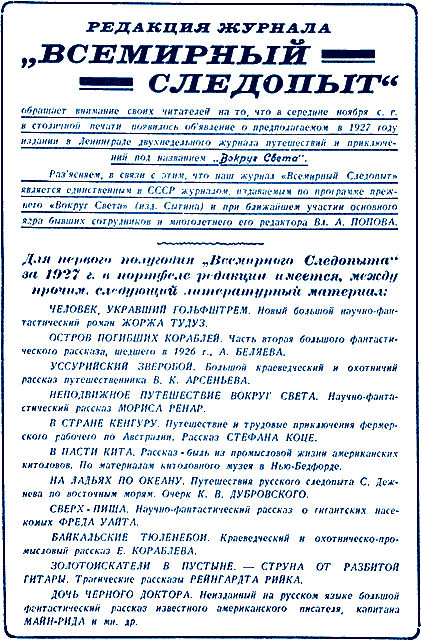 РЕДАКЦИЯ ЖУРНАЛА
„ВСЕМИРНЫЙ
СЛЕДОПЫТ“
обращает внимание своих читателей на то, что в середине ноября с. г.
в столичной печати появилось об'явление о предполагаемом в 1927 году
издании в Ленинграде двухнедельного журнала путешествий и приключе-
ний под названием „Вокруг Света“.
Раз'ясняем, в связи с этим, что наш журнал «Всемирный Следопыт»
является единственным в СССР журналом, издаваемым по программе преж-
него «Вокруг Света» (изд. Сытина) и при ближайшем участии основного
ядра бывших сотрудников и многолетнего его редактора Вл. А. ПОПОВА.
Для первого полугодия „Всемирного Следопыта“
за 1927 г. в портфеле редакции имеется, между
прочим, следующий литературный материал:
ЧЕЛОВЕК, УКРАВШИЙ ГОЛЬФШТРЕМ. Новый большой научно-фан-
тастический роман ЖОРЖА ТУДУЗ.
ОСТРОВ ПОГИБШИХ КОРАБЛЕЙ. Часть вторая большого фантасти-
ческого рассказа, шедшего в 1926 г., А. БЕЛЯЕВА.
УССУРИЙСКИЙ ЗВЕРОБОЙ. Большой краеведческий и охотничий
рассказ путешественника В. К. АРСЕНЬЕВА.
НЕПОДВИЖНОЕ ПУТЕШЕСТВИЕ ВОКРУГ СВЕТА. Научно-фанта-
стический рассказ МОРИСА РЕНАР.
В СТРАНЕ КЕНГУРУ. Путешествие и трудовые приключения фермер-
ского рабочего по Австралии. Рассказ СТЕФАНА КОЦЕ.
В ПАСТИ КИТА. Рассказ-быль из промысловой жизни американских
китоловов. По материалам китоловного музея в Нью-Бедфорде.
НА ЛАДЬЯХ ПО ОКЕАНУ. Путешествия русского следопыта С. Деж-
нева по восточным морям. Очерк К. В. ДУБРОВСКОГО.
СВЕРХ-ПИЩА. Научно-фантастический рассказ о гигантских насе-
комых ФРЕДА УАЙТА.
БАЙКАЛЬСКИЕ ТЮЛЕНЕБОИ. Краеведческий и охотническо-про-
мысловый рассказ Е. КОРАБЛЕВА.
ЗОЛОТОИСКАТЕЛИ В ПУСТЫНЕ. — СТРУНА ОТ РАЗБИТОЙ
ГИТАРЫ. Трагические рассказы РЕЙНГАРДТА РИЙКА.
ДОЧЬ ЧЕРНОГО ДОКТОРА. Неизданный на русском языке большой
фантастический рассказ известного американского писателя, капитана
МАЙН-РИДА и мн. др.